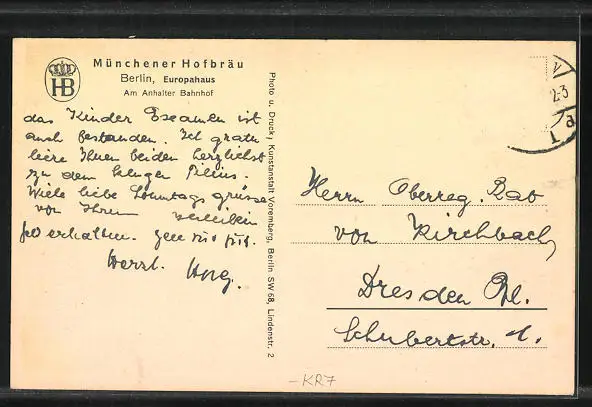 HB
Münchener Hofbräu
Berlin, Europahaus
Am Anhalter Bahnhof
das Kinder Examen ist
auch bestanden. Ich gratu
liere Ihnen beiden herzlichst
zu dem klugen
Viele liebe Sonntags grüsse
von Ihrem
erhalten.
Herzl.
Photo u. Druck; Kunstanstalt Voremberg, Berlin SW 68, Lindenstr. 2
Herrn Oberreg. Rat
von Kirchbach
Dresden
Schubertstr.
-KR7